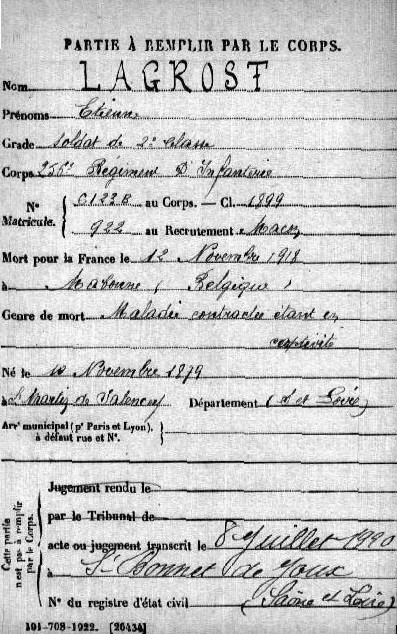 PARTIE À REMPLIR PAR LE CORPS.
Nom LAGROST
Prénoms Etienne
Grade soldat de 2e classe
Corps 256e Régiment D'Infanterie
N° Matricule. { 0122B au Corps. — Cl. 1899
922 au Recrutement Macon
Mort pour la France le 12 Novembre 1918
à (Belgique)
Genre de mort Maladie contractée étant en
captivité
Né le 10 Novembre 1879
à St Martin de Salencey Département (S et Loire)
Arrt municipal (pr Paris et Lyon), }
à défaut rue et N°.
Cette partie n'est pas à remplir par le Corps.
Jugement rendu le
par le Tribunal de
acte ou jugement transcrit le 8 Juillet 1920
à St Bonnet de Joux
N° du registre d'état civil (Saône et Loire)
101-708-1922. [26434]